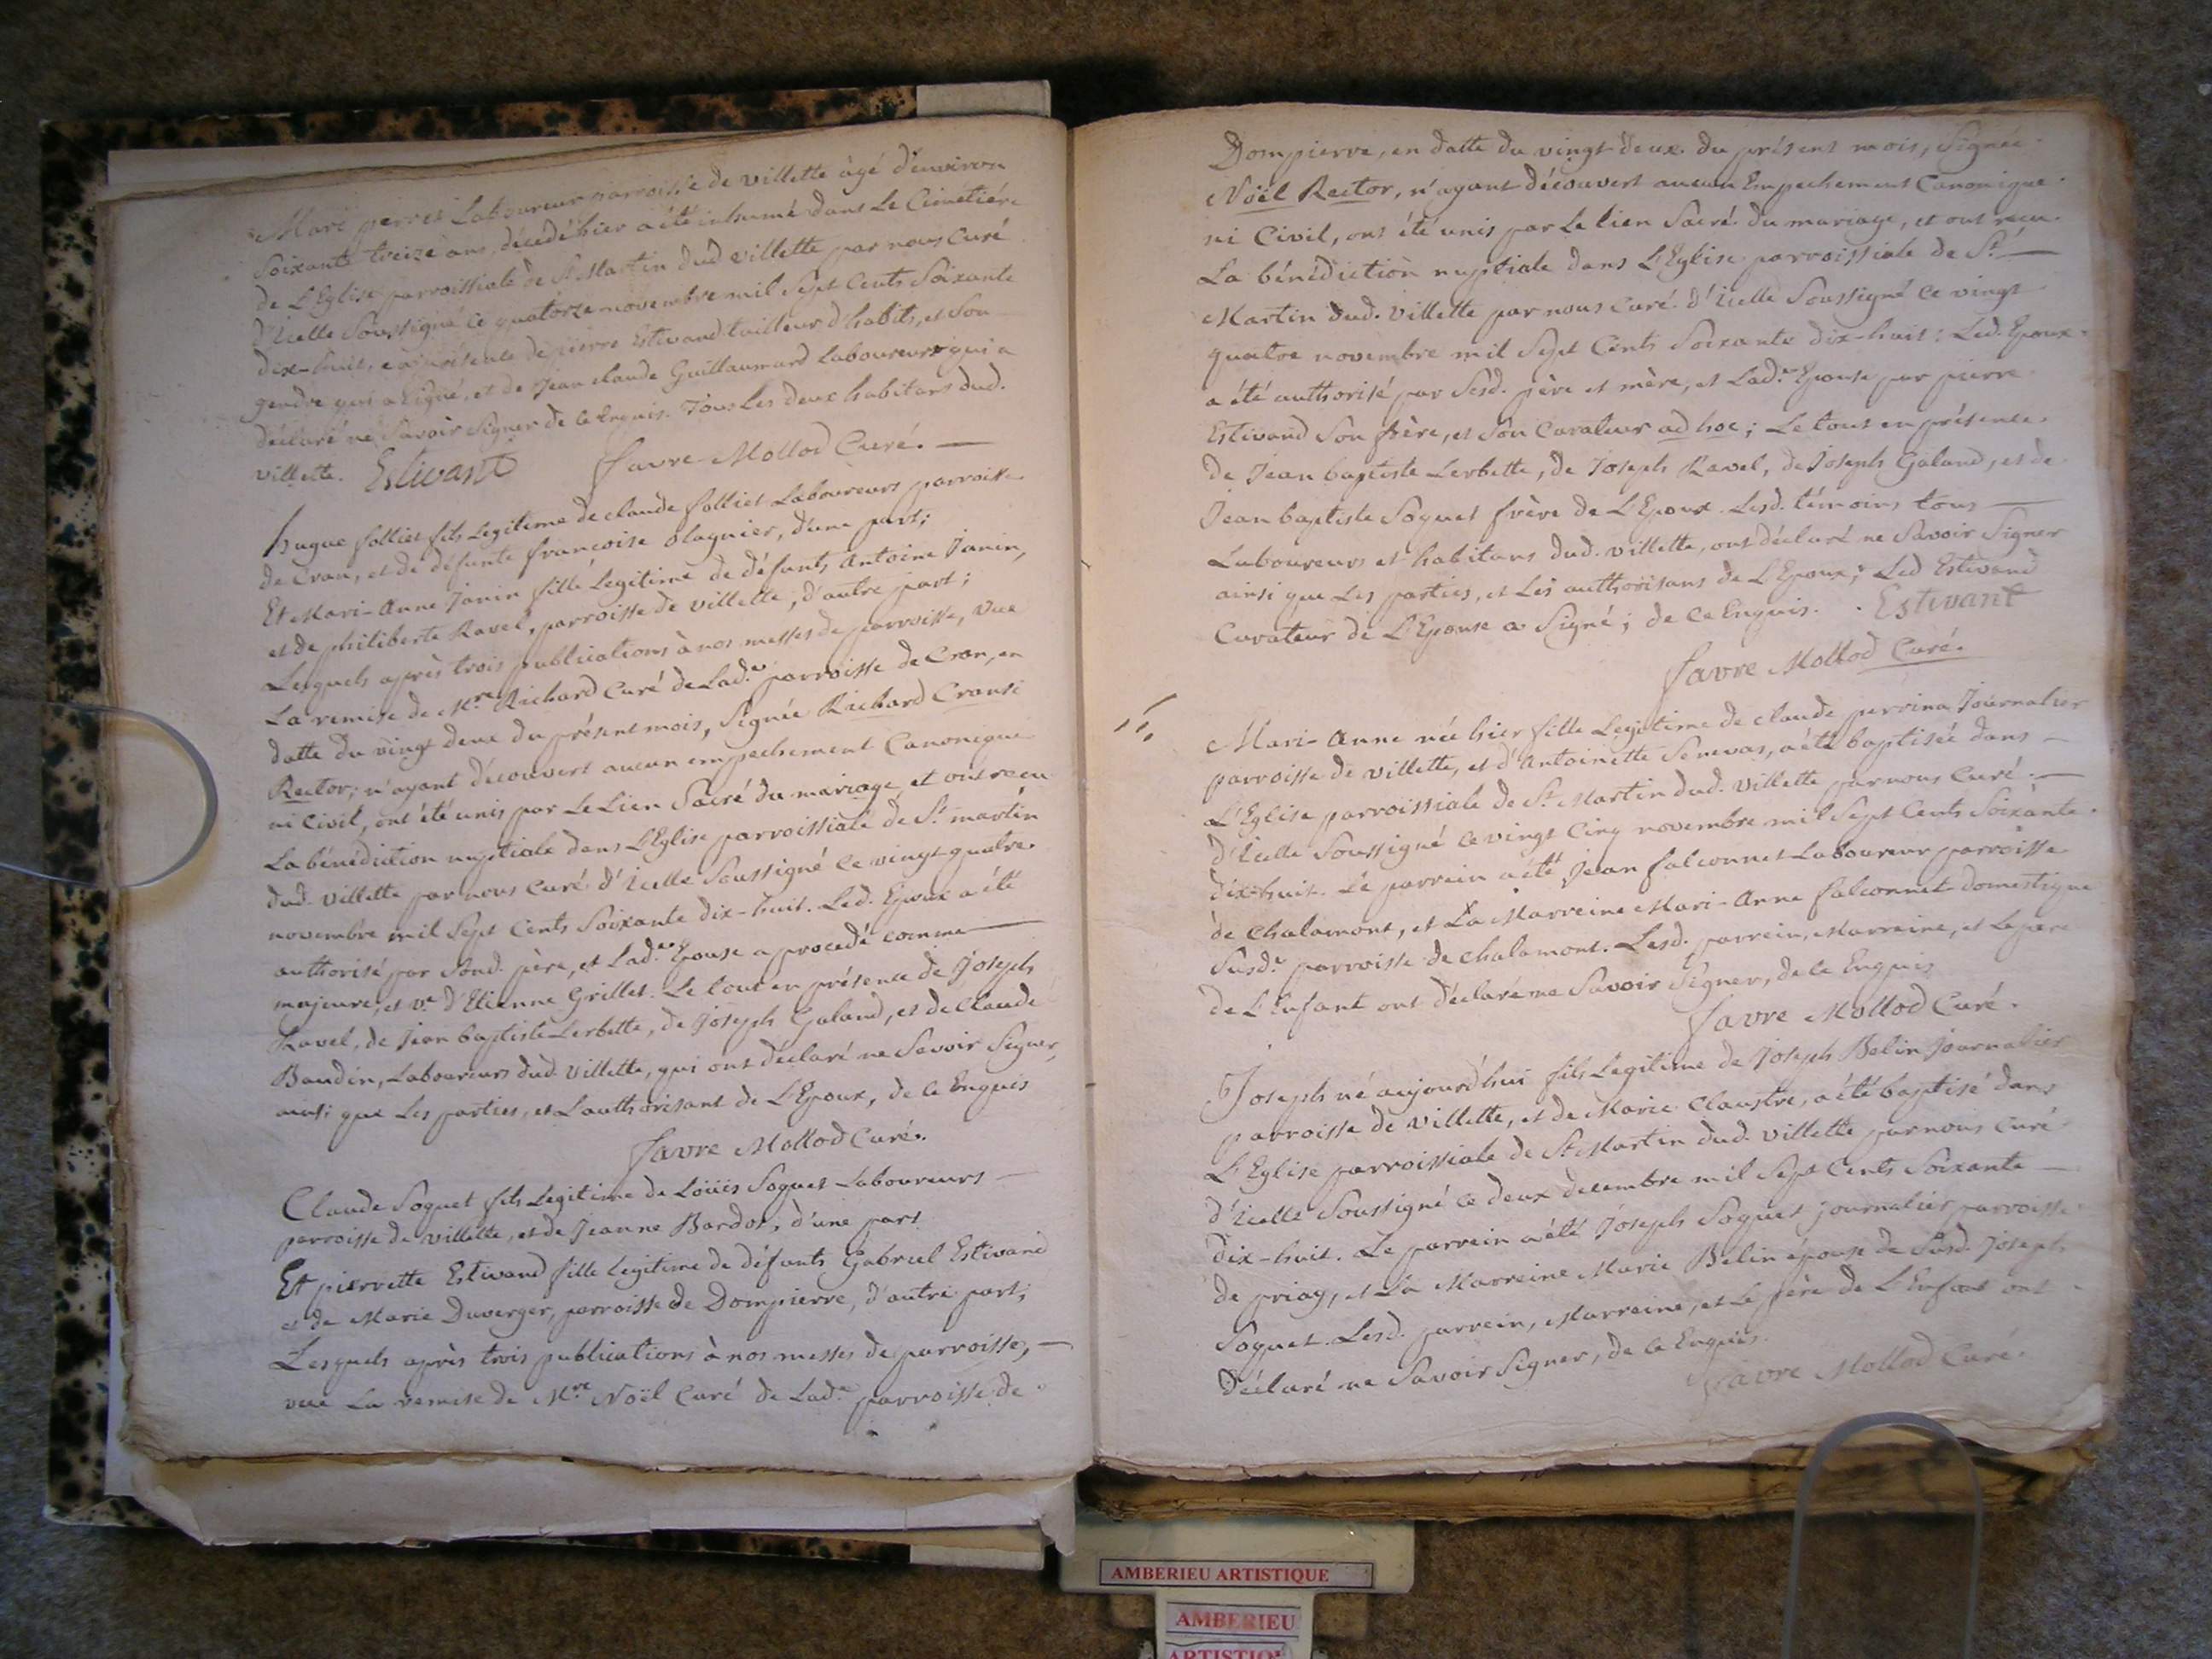 Marc perret Laboureur parroisse de villette âgé d'environ
Soixante treize ans, décédé hier a été inhumé dans Le Cimetière
de L'Eglise parroissiale de St Martin dud villette par nous Curé
d'Icelle Soussigné ce quatorze novembre mil Sept Cents Soixante
dix-huit, en présence de pierre Estivand tailleur d'habits, et Son
gendre qui a signé, et de Jean claude Guillaumard Laboureur qui a
déclaré ne Savoir Signer de ce Enquis. Tous Les deux habitans dud.
villette. Estivant favre Mollod Curé.
hugue folliet fils Legitime de claude folliet Laboureurs parroisse
de Cran, et de défunte françoise blagnier, d'une part;
Et Mari-Anne Janin fille Legitime de défunts Antoine Janin,
et de philiberte Ravel, parroisse de villette, d'autre part;
Lesquels après trois publications à nos messes de parroisse, vue
La remise de Mre Richard Curé de Lad.e parroisse de Cran, en
datte du vingt deux du présent mois, Signée Richard Cransi
Rector; n'ayant découvert aucun empechement Canonique
ni Civil, ont été unis par Le Lien Sacré du mariage, et ont reçu
La bénédiction nuptiale dans L'Eglise parroissiale de St martin
dud. villette par nous Curé d'Icelle Soussigné ce vingt quatre
novembre mil Sept Cents Soixante dix-huit. Led. Epoux a été
authorisé par Sond. père, et Lad.e Epouse a procedé comme
majeure, et ve d'Etienne Grillet. Le tout en présence de Joseph
Ravel, de Jean baptiste Lerbette, de Joseph Galand, et de Claude
Baudin, Laboureurs dud. villette, qui ont déclaré ne Savoir Signer,
ainsi que Les parties, et L'authorisant de L'Epoux, de ce Enquis
favre Mollod Curé.
Claude Soquet fils Legitime de Loüis Soquet Laboureurs
parroisse de villette, et de Jeanne Bardot, d'une part
Et pierrette Estivand fille Legitime de défunts Gabriel Estivand
et de Marie Duverger, parroisse de Dompierre, d'autre part;
Lesquels après trois publications à nos messes de parroisse,
vue La remise de Mre Noël Curé de Lad.e parroisse de
Dompierre, en datte du vingt deux du présent mois, Signée
Noël Rector, n'ayant découvert aucun Empechement Canonique
ni Civil, ont été unis par Le lien Sacré du mariage, et ont reçu
La bénédiction nuptiale dans L'Eglise parroissiale de St
Martin dud. villette par nous Curé d'Icelle Soussigné ce vingt
quatre novembre mil Sept Cents Soixante dix-huit: Led. Epoux
a été authorisé par Sesd. père et mère, et Lad.e Epouse par pierre
Estivand Son frère, et Son Curateur ad hoc; Le tout en présence
de Jean baptiste Lerbette, de Joseph Ravel, de Joseph Galand, et de
Jean baptiste Soquet frère de L'Epoux. Lesd. témoins tous
Laboureurs et habitans dud. villette, ont déclaré ne Savoir Signer
ainsi que Les parties, et Les authorisans de L'Epoux; Led Estivand
Curateur de L'Epouse a Signé; de ce Enquis. Estivant
favre Mollod Curé.
Mari-Anne née hier fille Legitime de claude perrina Journalier
parroisse de villette, et d'Antoinette Senevas, a été baptisée dans
L'Eglise parroissiale de St Martin dud. villette par nous Curé
d'Icelle Soussigné ce vingt Cinq novembre mil Sept Cents Soixante
dix-huit. Le parrein a été Jean falconnet Laboureur parroisse
de Chalamont, et La Marreine Mari-Anne falconnet domestique
Susd.e parroisse de chalamont. Lesd. parrein, Marreine, et Le père
de L'Enfant ont déclaré ne Savoir Signer, de ce Enquis
favre Mollod Curé.
Joseph né aujourd'hui fils Legitime de Joseph Belin Journalier
parroisse de villette, et de Marie Claustre, a été baptisé dans
L'Eglise parroissiale de St Martin dud. villette par nous Curé
d'Icelle Soussigné ce deux decembre mil Sept Cents Soixante
dix-huit. Le parrein a été Joseph Soquet journalier parroisse
de priay, et La Marreine Marie Belin épouse de Susd. Joseph
Soquet. Lesd. parrein, Marreine, et Le père de L'Enfant ont
déclaré ne Savoir Signer, de ce Enquis.
favre Mollod Curé.
AMBERIEU ARTISTIQUE
AMBERIEU
ARTISTIQUE